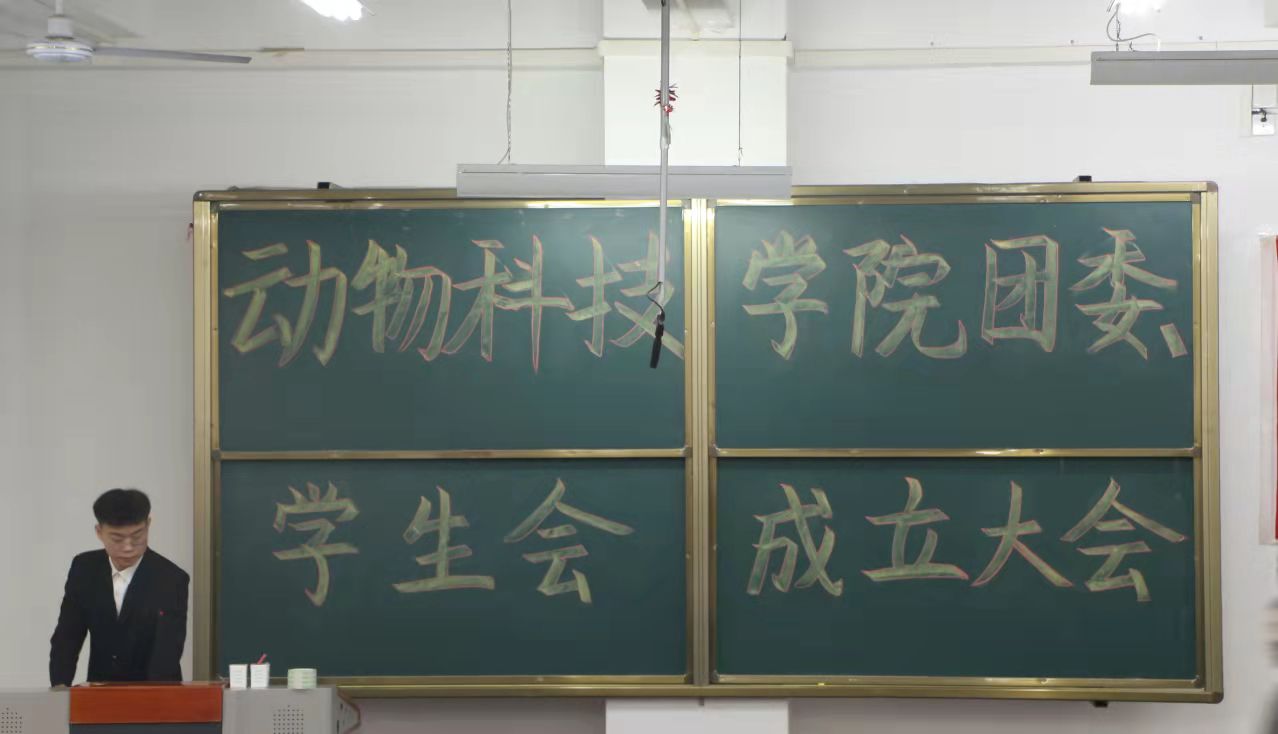 动物科技学院团委、
学生会成立大会